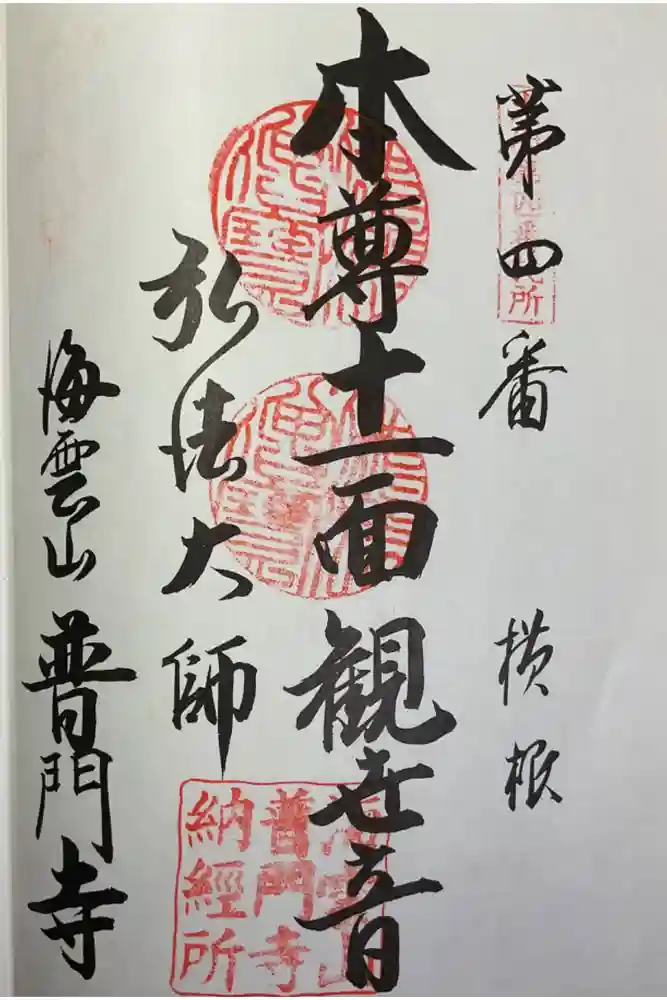 第四番 横根
本尊十一面觀世音
弘法大師
海雲山 普門寺
海雲山
普門寺
納經所